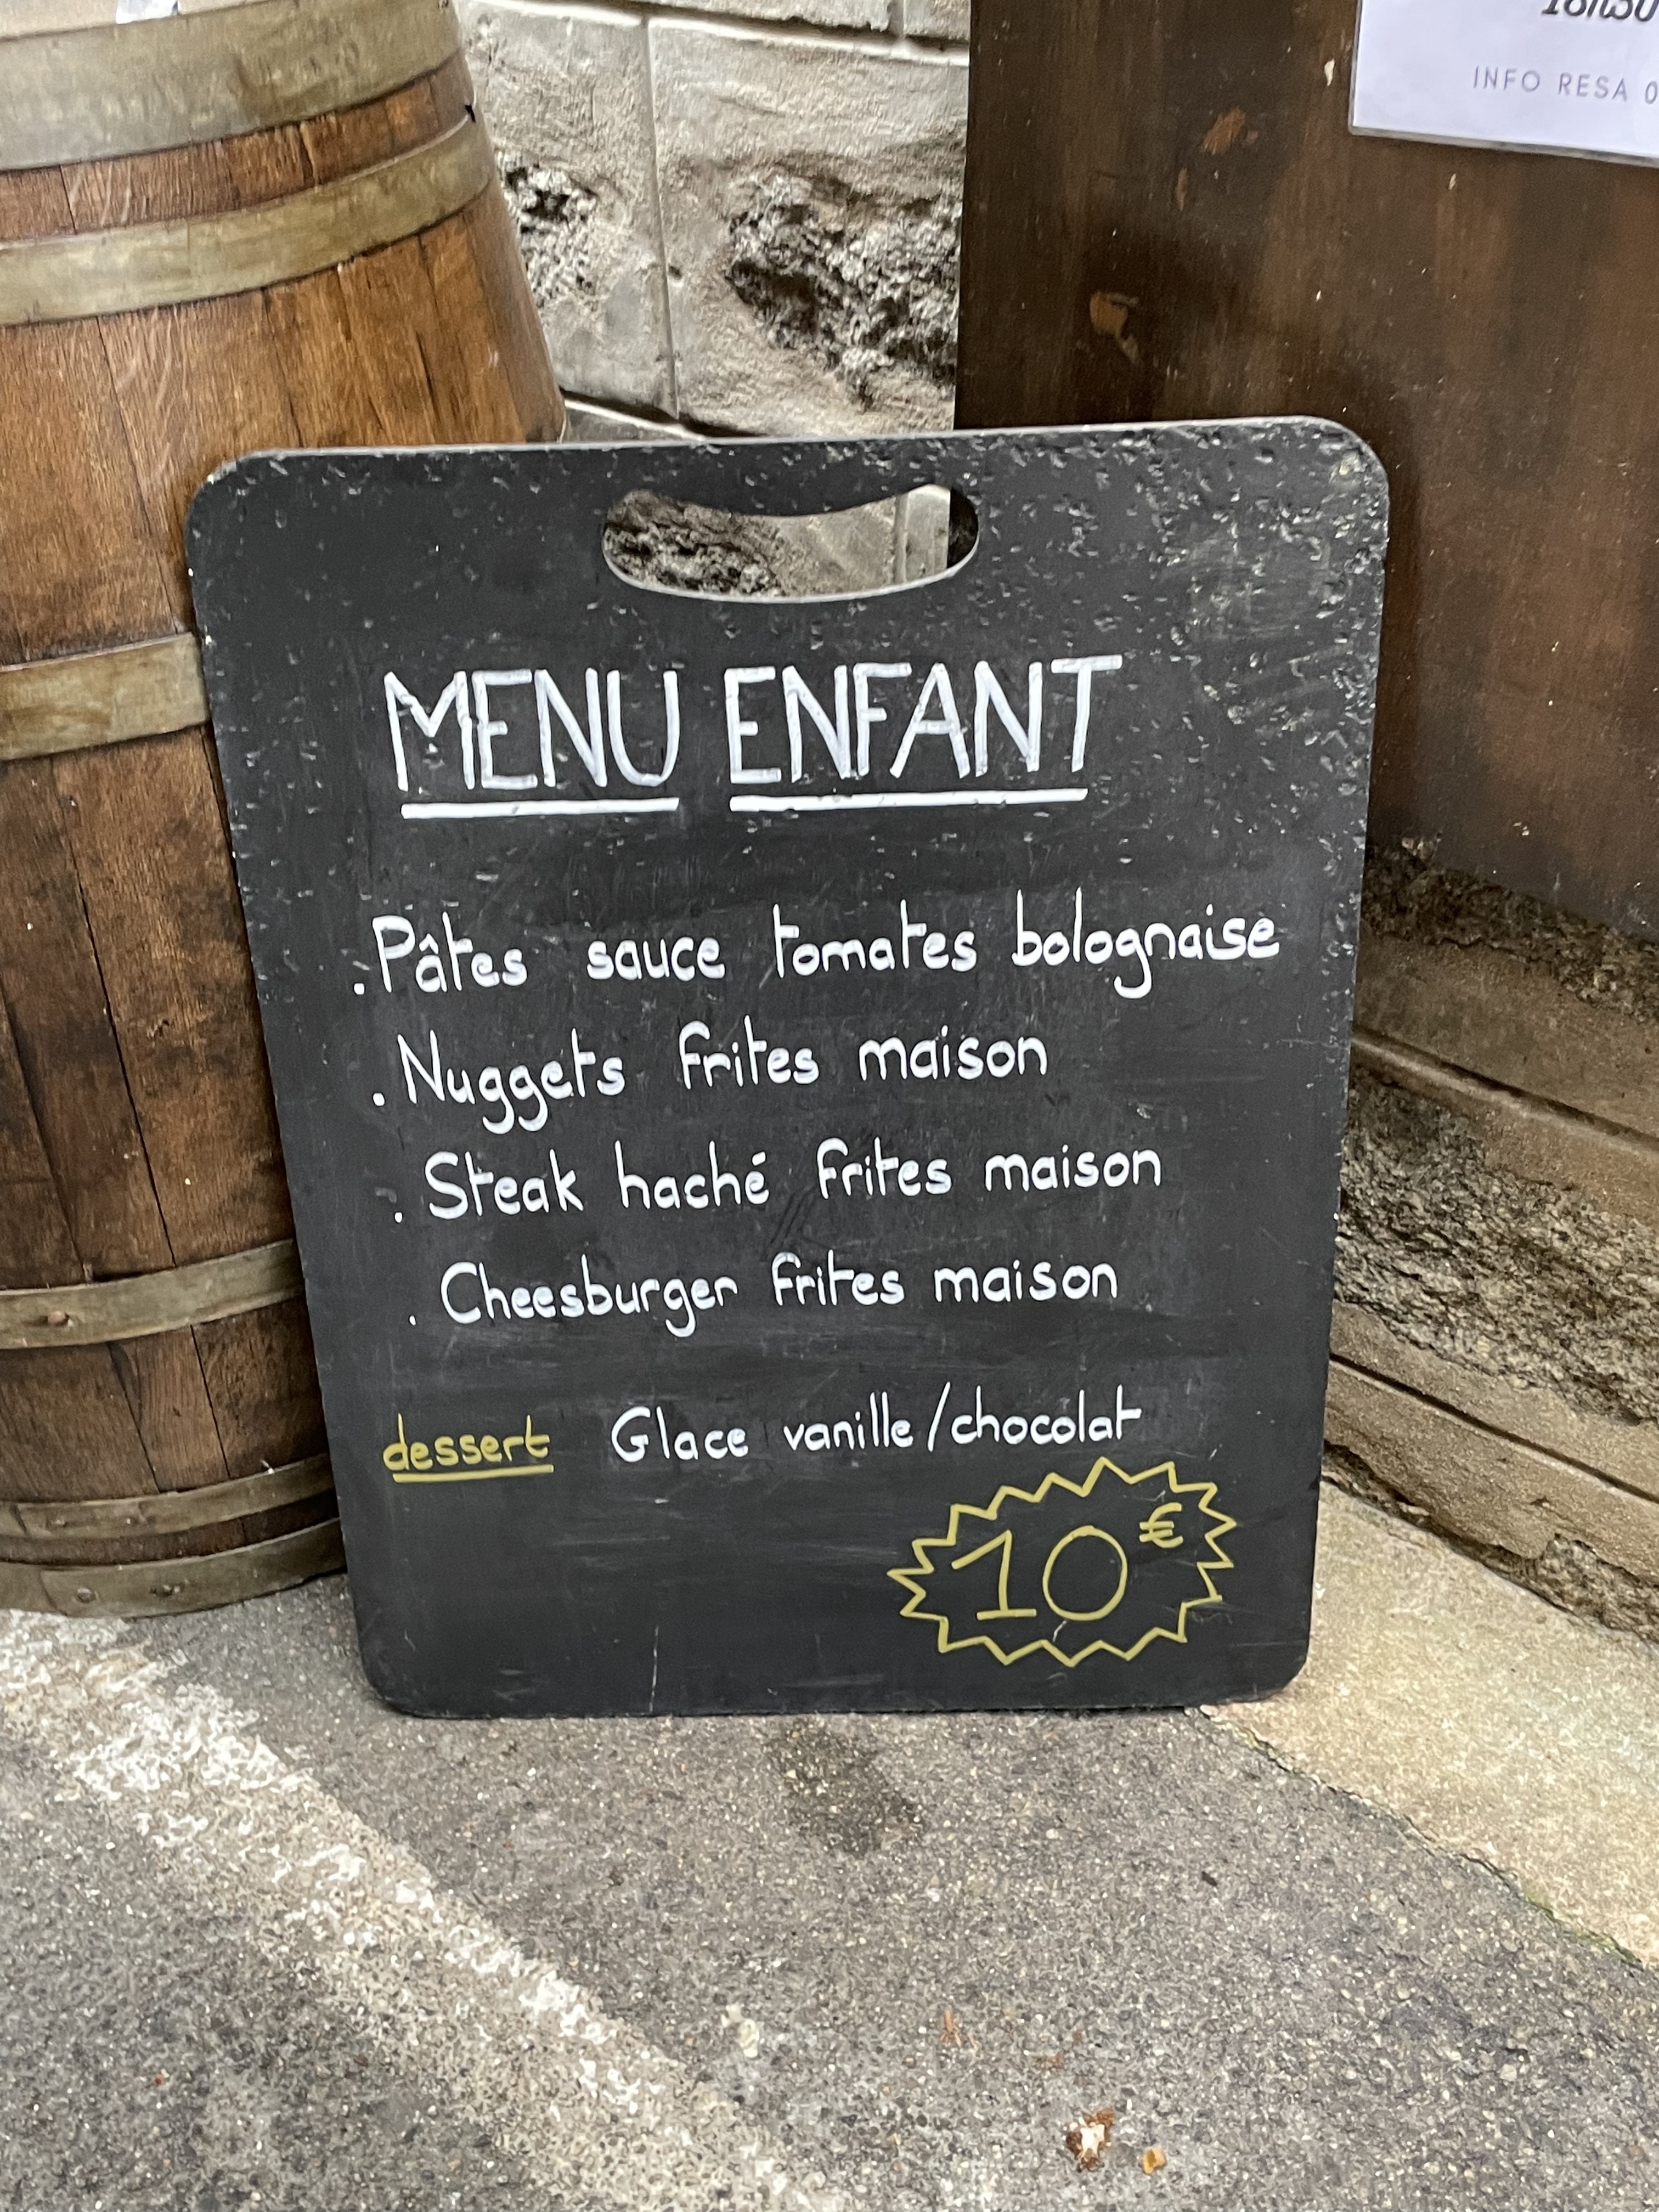 18h30
INFO RESA 0
MENU ENFANT
. Pâtes sauce tomates bolognaise
. Nuggets frites maison
. Steak haché frites maison
. Cheesburger frites maison
dessert Glace vanille/chocolat
10€